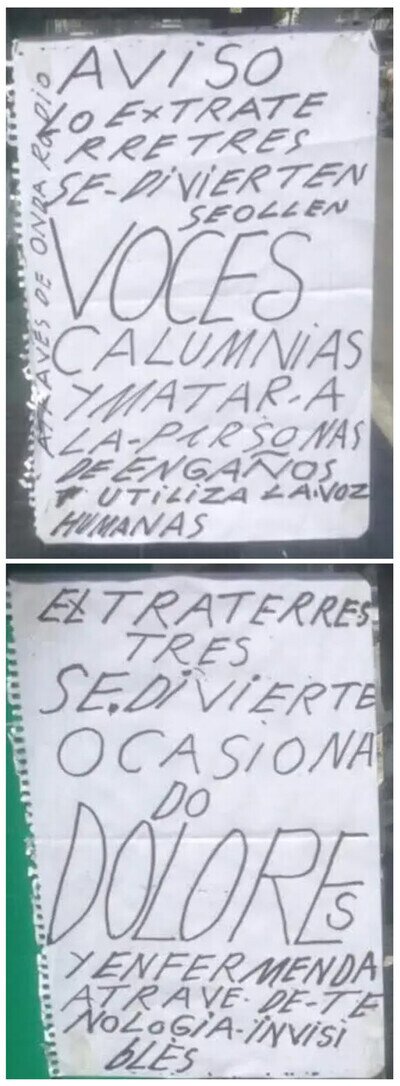 AViSO
LO EXTRATE
RRETRES
SE-DiViERTEN
SEOLLEN
VOCES
CALUMNiAS
Y MATAR-A
LA-PERSONAS
DE ENGAÑOS
Y UTiLiZA LA.VOZ
HUMANAS
ATRAVES DE ONDA RADIO
EXTRATERRES
TRES
SE.DiViERTE
OCASiONA
DO
DOLORES
Y ENFERMENDA
ATRAVE-DE-TE
NOLOGiA-iNViSi
bLES